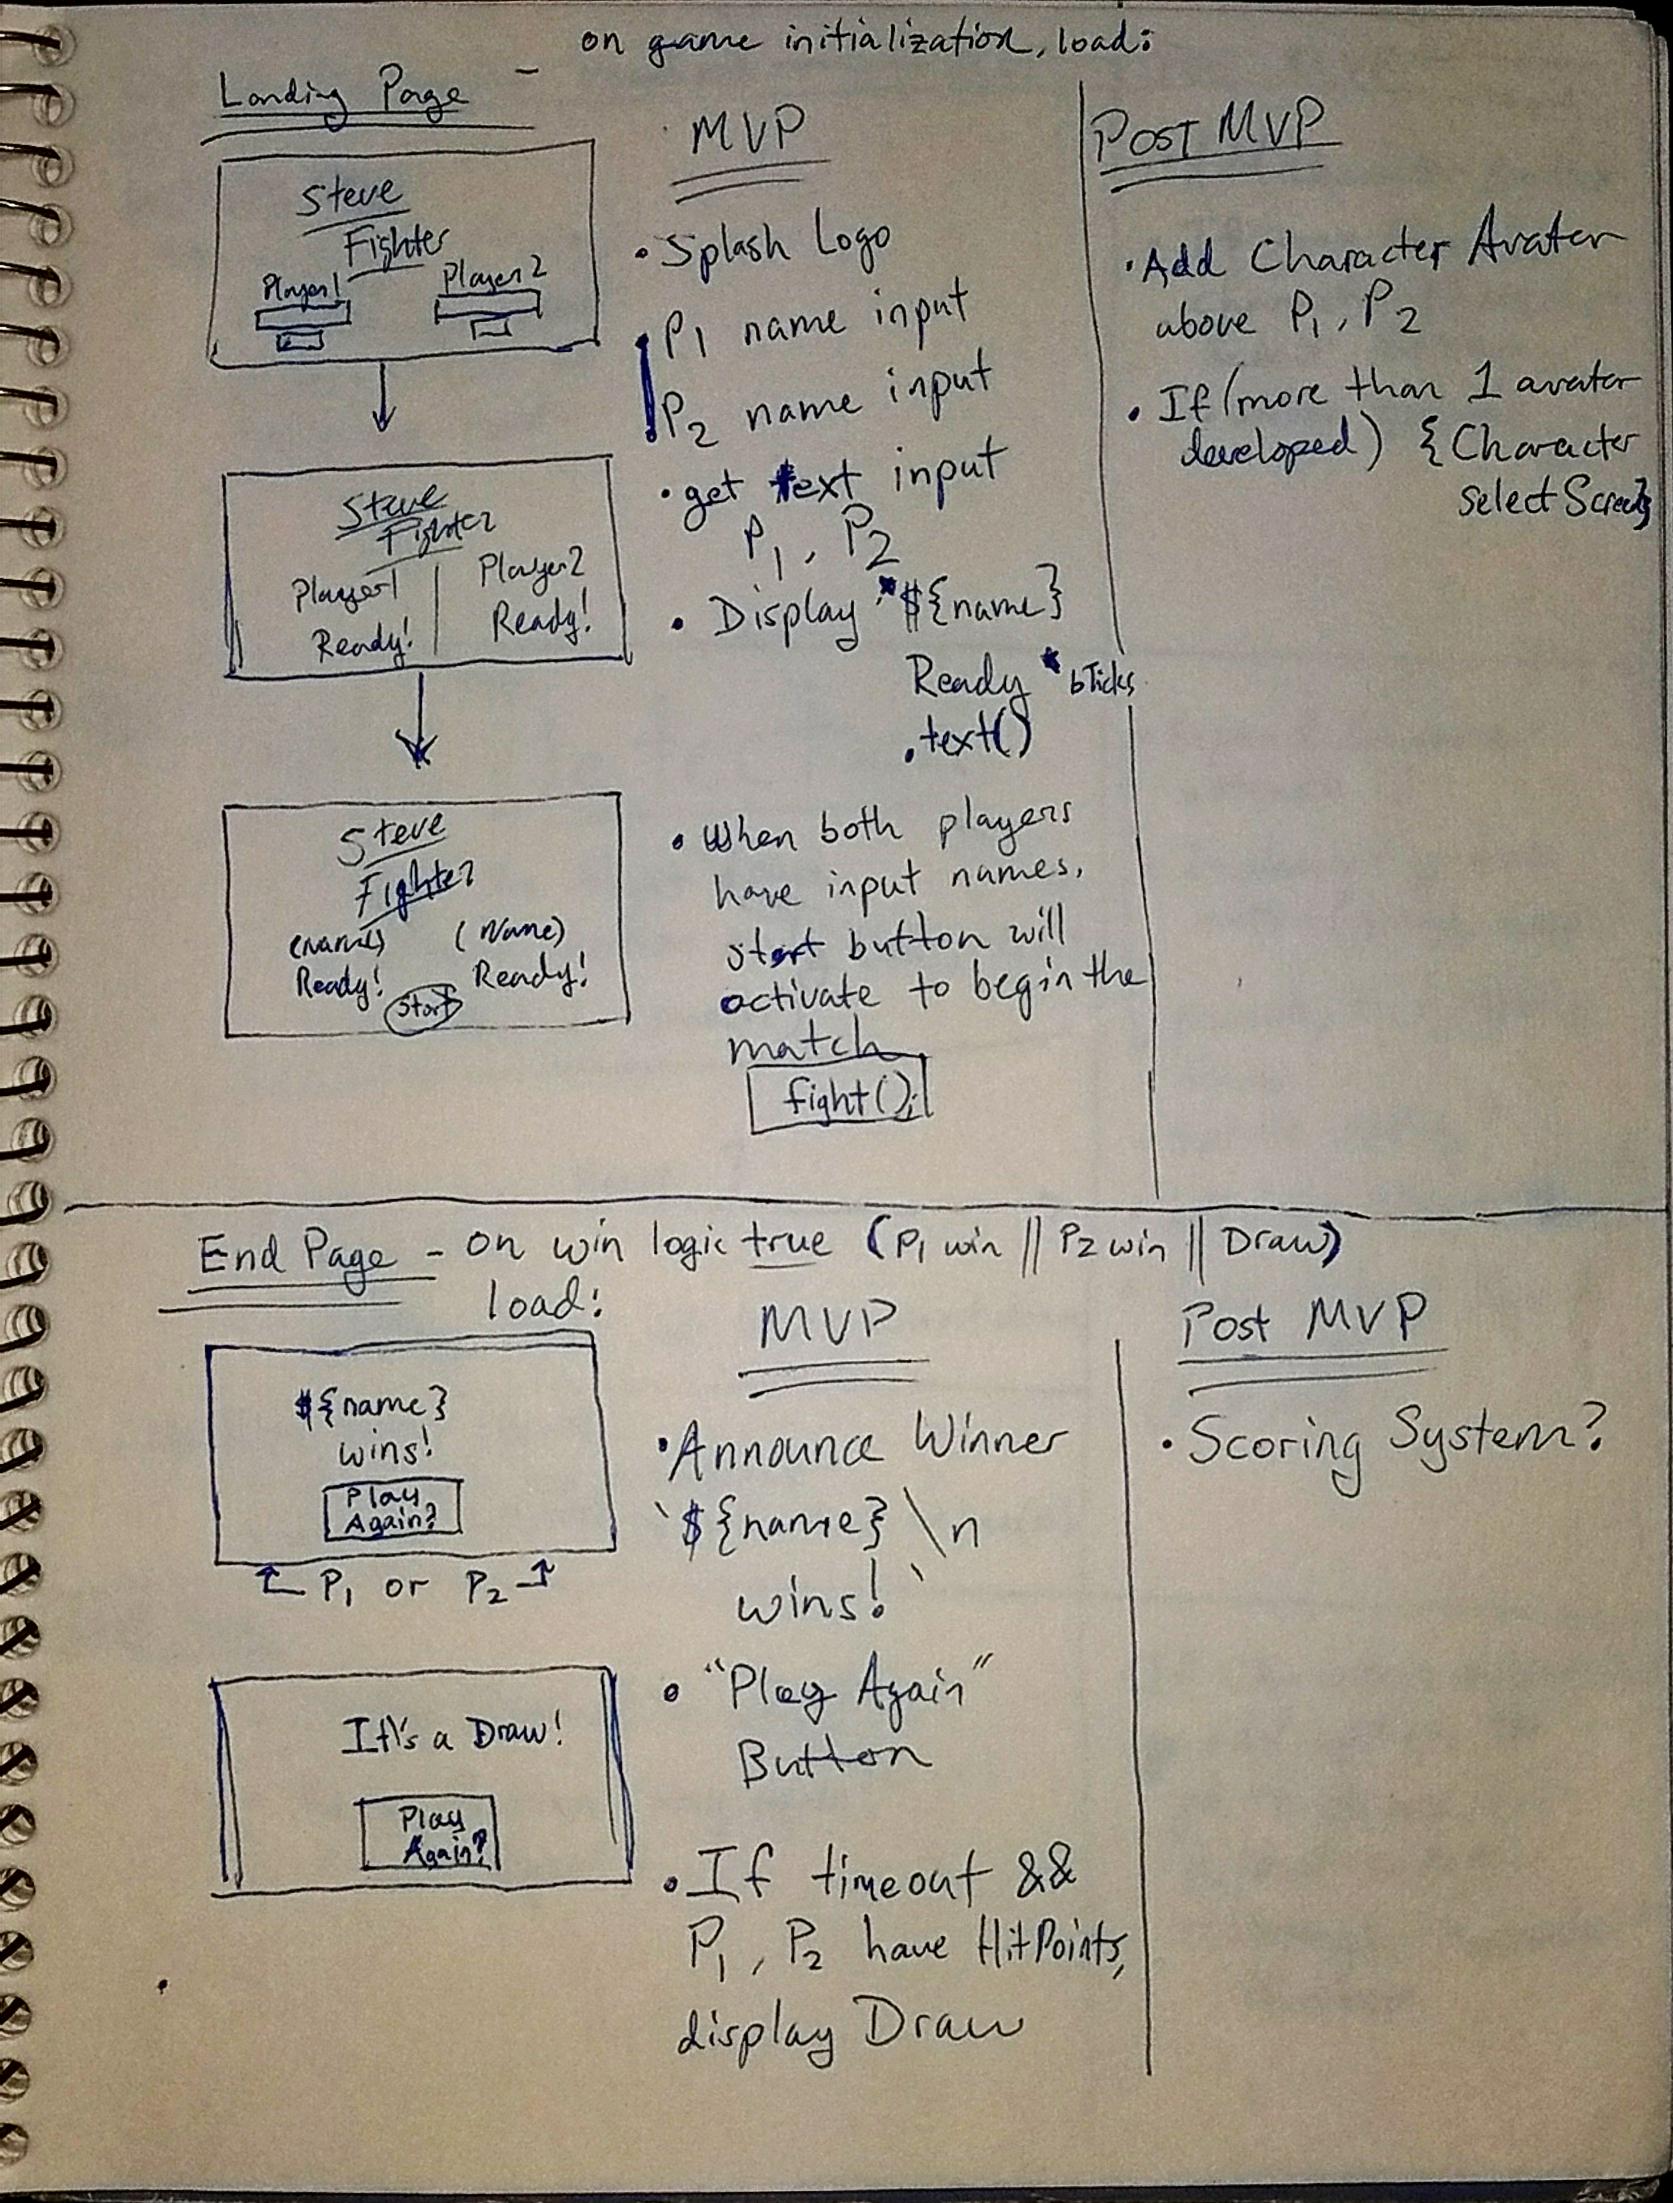 Landing Page - on game initialization, load:
Steve
Fighter
Player1 Player2
Steve
Fighter
Player1 Player2
Ready! Ready!
Steve
Fighter
(Name) (Name)
Ready! Ready!
Start
MVP
• Splash Logo
• P1 name input
• P2 name input
• get text input
P1, P2
• Display `${name}
Ready` bTicks
.text()
• When both players
have input names,
start button will
activate to begin the
match
fight();
Post MVP
• Add Character Avatar
above P1, P2
• If (more than 1 avatar
developed) {Character
select Screen}
End Page - on win logic true (P1 win || P2 win || Draw)
load:
${name}
wins!
Play
Again?
P1 or P2
It's a Draw!
Play
Again?
MVP
• Announce Winner
`${name} \n
wins!`
• "Play Again"
Button
• If timeout &&
P1, P2 have HitPoints,
display Draw
Post MVP
• Scoring System?